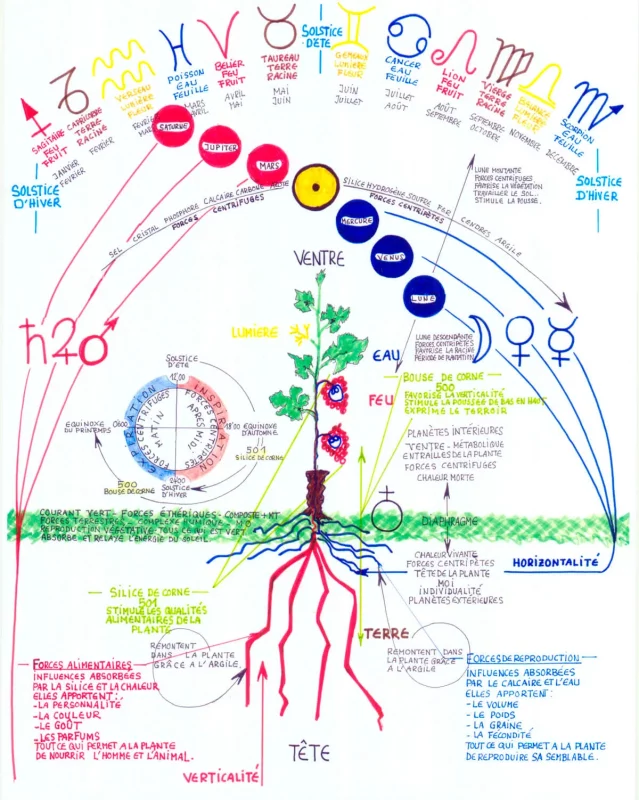 SAGITAIRE
FEU
FRUIT
JANVIER
FEVRIER
CAPRICORNE
TERRE
RACINE
FEVRIER
VERSEAU
LUMIERE
FLEUR
POISSON
EAU
FEUILLE
MARS
AVRIL
BELIER
FEU
FRUIT
AVRIL
MAI
TAUREAU
TERRE
RACINE
MAI
JUIN
SOLSTICE
D'ÉTÉ
GEMEAU
LUMIERE
FLEUR
JUIN
JUILLET
CANCER
EAU
FEUILLE
JUILLET
AOÛT
LION
FEU
FRUIT
AOÛT
SEPTEMBRE
VIERGE
TERRE
RACINE
SEPTEMBRE
OCTOBRE
BALANCE
LUMIERE
FLEUR
NOVEMBRE
SCORPION
EAU
FEUILLE
DECEMBRE
SOLSTICE
D'HIVER
SOLSTICE
D'HIVER
SATURNE
JUPITER
MARS
MERCURE
VENUS
LUNE
SEL CRISTAL PHOSPHORE CALCAIRE CARBONE AZOTE
FORCES CENTRIFUGES
SILICE HYDROGÈNE SOUFRE FER CENDRES ARGILE
FORCES CENTRIPÈTES
LUNE MONTANTE
FORCES CENTRIFUGES
FAVORISE LA VÉGÉTATION
TRAVAILLER LE SOL...
STIMULE LA POUSSE.
VENTRE
LUMIÈRE
EAU
FEU
LUNE DESCENDANTE
FORCES CENTRIPÈTES
FAVORISE LA RACINE
PÉRIODE DE PLANTATION
BOUSE DE CORNE
500
FAVORISE LA VERTICALITÉ
STIMULE LA POUSSÉE DE BAS EN HAUT
EXPRIME LE TERROIR
SOLSTICE
D'ÉTÉ
1200
EXPIRATION
FORCES CENTRIFUGES
MATIN
INSPIRATION
FORCES CENTRIPÈTES
APRÈS MIDI
EQUINOXE
DU PRINTEMPS
0600
1800 EQUINOXE
D'AUTOMNE
501
SILICE DE CORNE
2400
SOLSTICE
D'HIVER
500
BOUSE DE CORNE
PLANÈTES INTÉRIEURES
VENTRE - MÉTABOLIQUE
ENTRAILLES DE LA PLANTE
FORCES CENTRIFUGES
CHALEUR MORTE
COURANT VERT - FORCES ÉTHÉRIQUES - COMPOSTE + MT
FORCES TERRESTRES - COMPLEXE HUMIQUE - MO
REPRODUCTION VÉGÉTATIVE TOUS CE QUI EST VERT
ABSORBE ET RELAYE L'ÉNERGIE DU SOLEIL
DIAPHRAGME
CHALEUR VIVANTE
FORCES CENTRIPÈTES
TÊTE DE LA PLANTE
MOI
INDIVIDUALITÉ
PLANÈTES EXTÉRIEURES
HORIZONTALITÉ
SILICE DE CORNE
501
STIMULE LES QUALITÉS
ALIMENTAIRES DE LA
PLANTE
REMONTENT
DANS LA PLANTE
GRÂCE A L'ARGILE
TERRE
REMONTENT DANS
LA PLANTE GRÂCE
A L'ARGILE
FORCES ALIMENTAIRES
INFLUENCES ABSORBÉES
PAR LA SILICE ET LA CHALEUR
ELLES APPORTENT:
- LA PERSONNALITÉ
- LA COULEUR
- LE GOÛT
- LES PARFUMS
TOUT CE QUI PERMET A LA PLANTE
DE NOURRIR L'HOMME ET L'ANIMAL.
FORCES DE REPRODUCTION
INFLUENCES ABSORBÉES
PAR LE CALCAIRE ET L'EAU
ELLES APPORTENT:
- LE VOLUME
- LE POIDS
- LA GRAINE
- LA FÉCONDITÉ
TOUT CE QUI PERMET A LA PLANTE
DE REPRODUIRE SA SEMBLABLE.
TÊTE
VERTICALITÉ